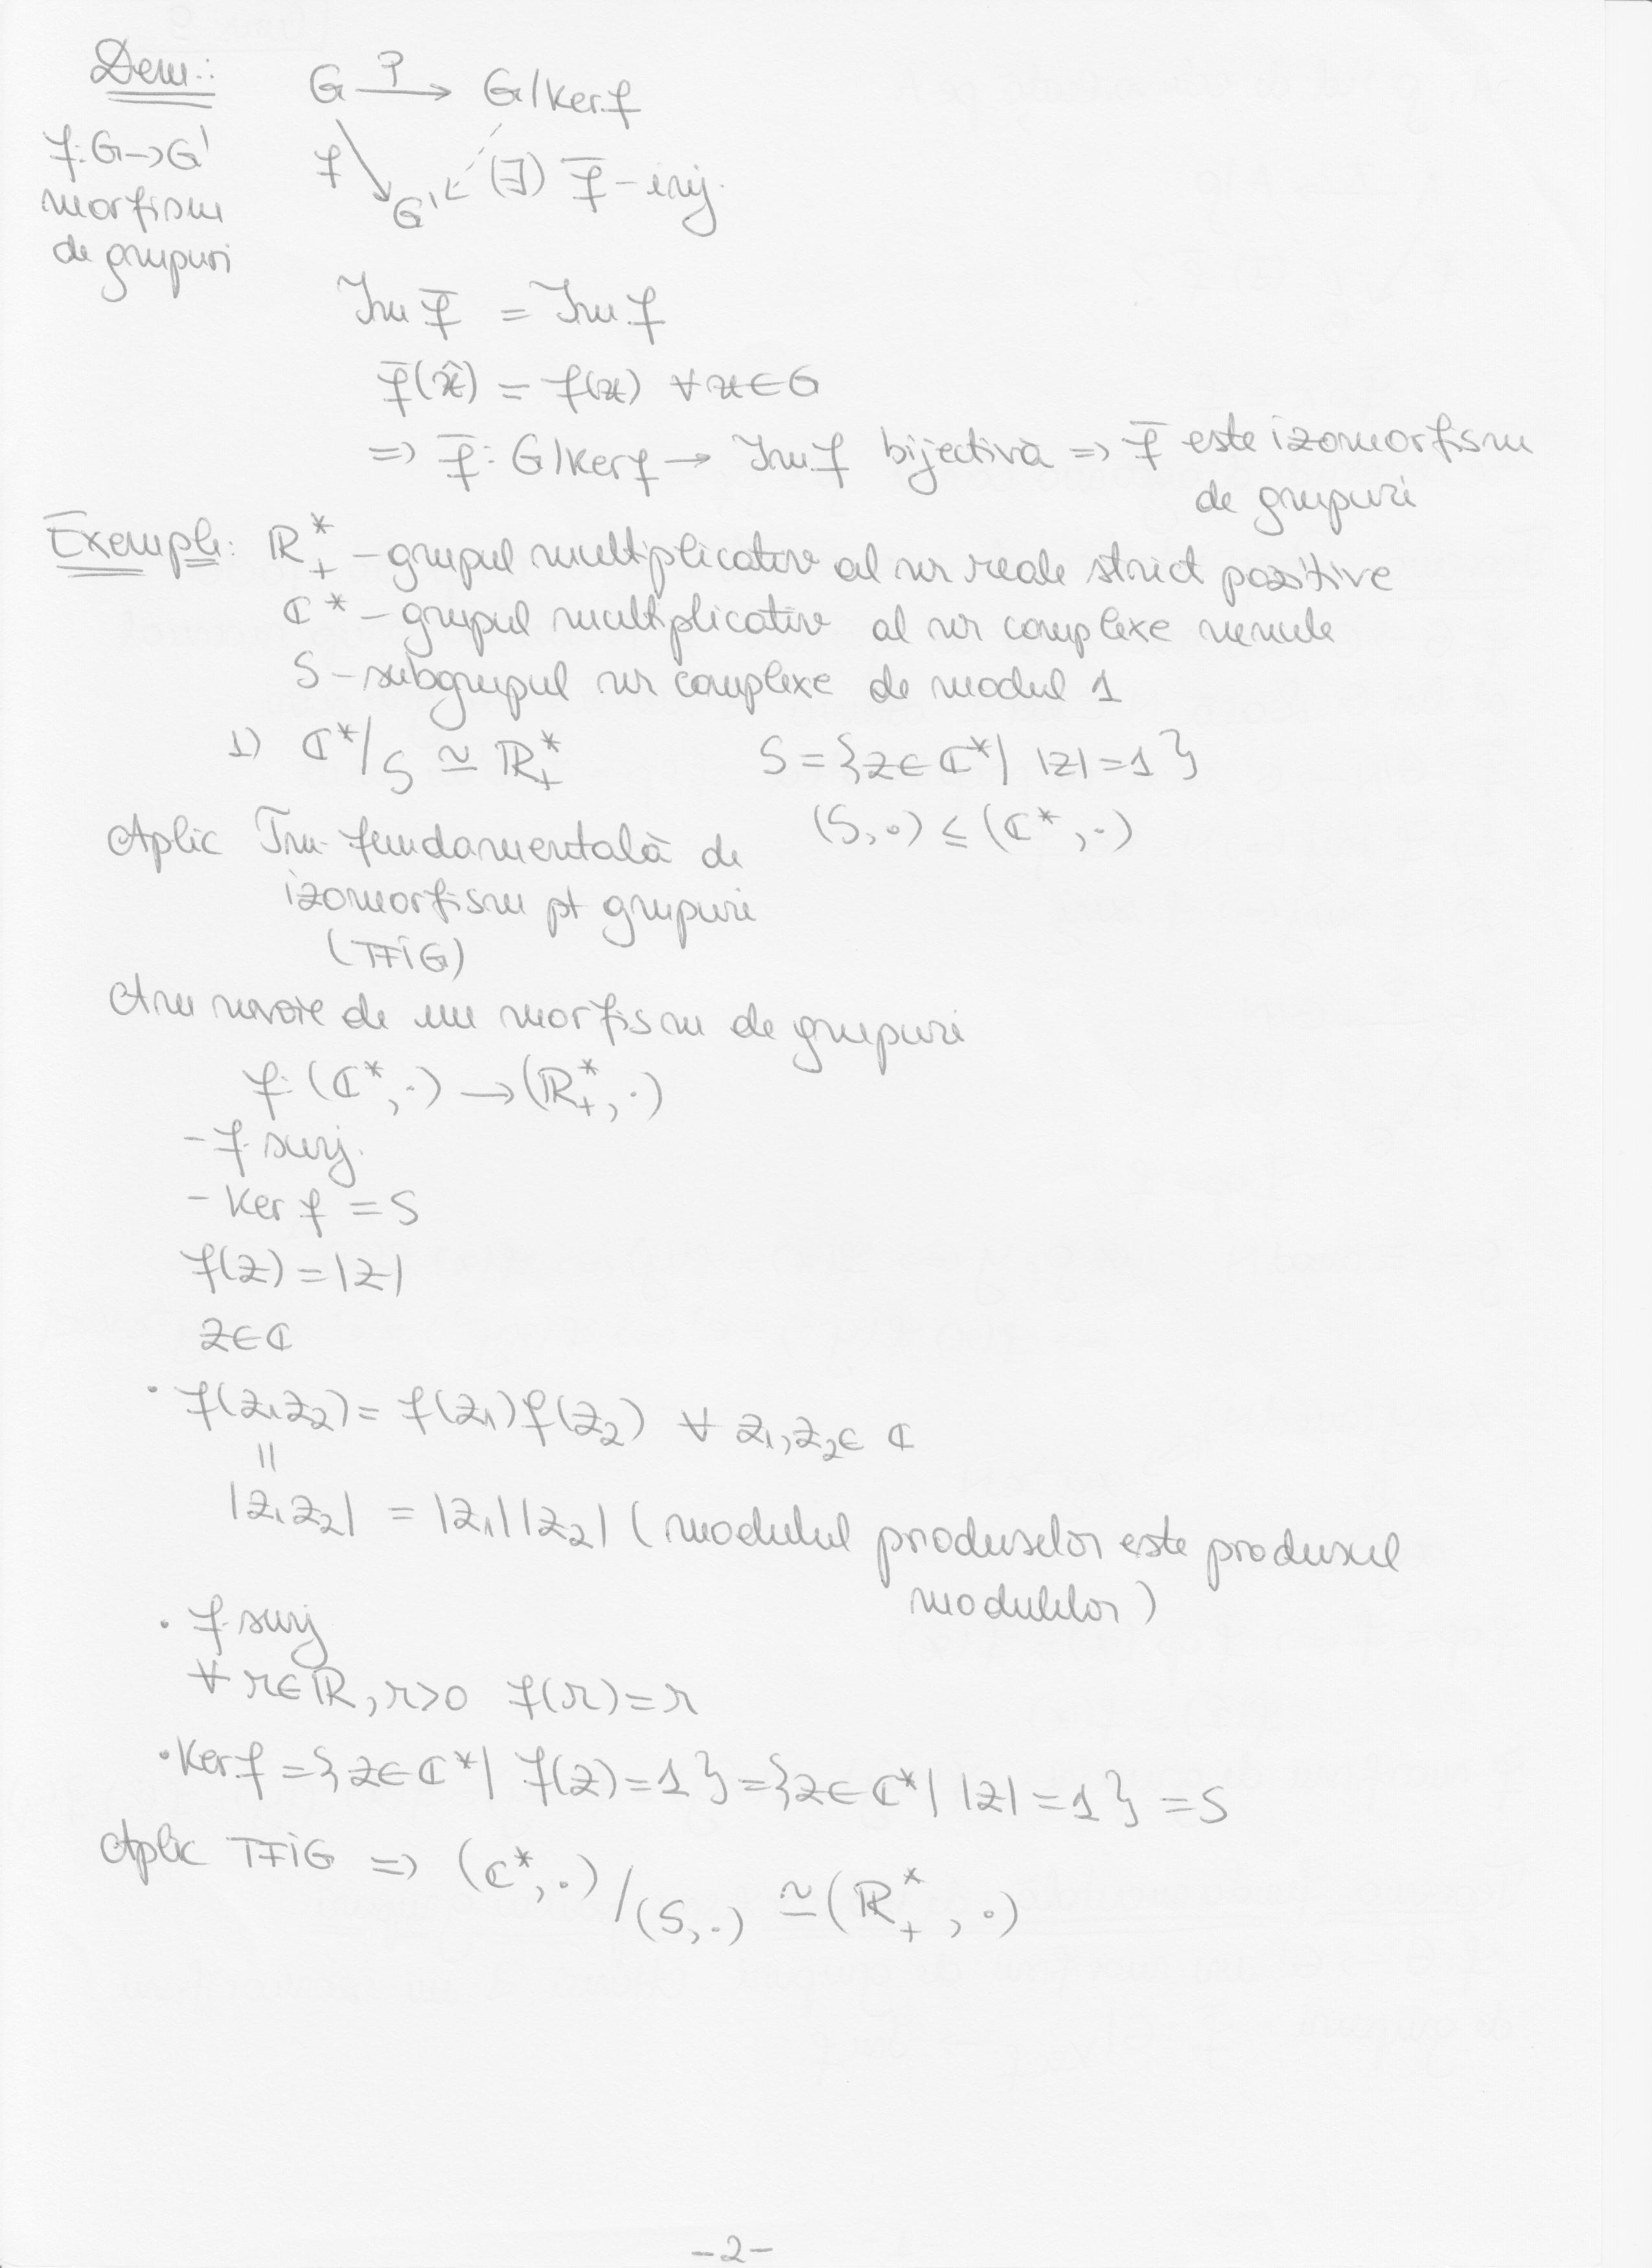 Dem.:
G —p→ G/Ker f
f: G→G'
morfism
de grupuri
f G' (∃) f̄ - inj.
Im f̄ = Im f
f̄(x̂) = f(x) ∀ x∈G
=> f̄: G/Ker f → Im f bijectivă => f̄ este izomorfism
de grupuri
Exemple: ℝ*₊ – grupul multiplicativ al nr reale strict pozitive
ℂ* – grupul multiplicativ al nr complexe nenule
S – subgrupul nr complexe de modul 1
1) ℂ*/S ≃ ℝ*₊ S = {z∈ℂ* | |z| = 1}
(S, ·) ≤ (ℂ*, ·)
Aplic Tm. fundamentală de
izomorfism pt grupuri
(TFIG)
Am nevoie de un morfism de grupuri
f: (ℂ*, ·) → (ℝ*₊, ·)
- f surj.
- Ker f = S
f(z) = |z|
z∈ℂ
· f(z₁z₂) = f(z₁)f(z₂) ∀ z₁, z₂∈ ℂ
||
|z₁z₂| = |z₁||z₂| (modulul produselor este produsul
modulelor)
· f surj
∀ r∈ℝ, r>0 f(r) = r
· Ker f = {z∈ℂ* | f(z) = 1} = {z∈ℂ* | |z| = 1} = S
Aplic TFIG => (ℂ*, ·)/(S, ·) ≃ (ℝ*₊, ·)
-2-